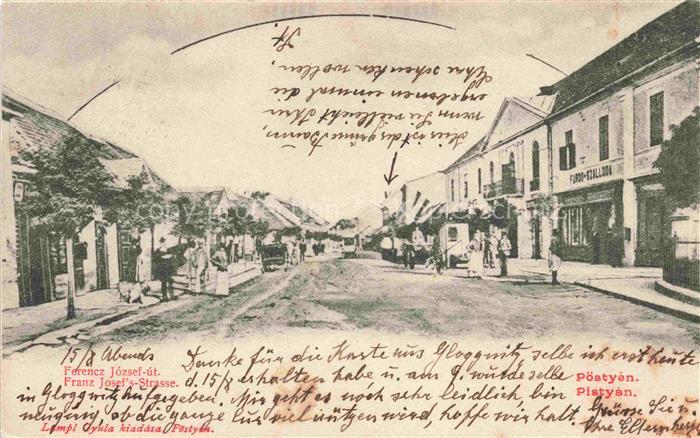 Hier ist das grüne Baum,
wenn Sie vielleicht Ihr
ergebenen einmal die
Ehre schenken wollen.
FÜRDŐ-SZÁLLODA
15/8 Abends
Ferencz József-út.
Franz Josef's-Strasse.
Pöstyén.
Pistyán.
Danke für die Karte aus Gloggnitz, selbe ich erst heute
d. 15/8 erhalten habe u. am 9. wurde selbe
in Gloggnitz aufgegeben. Mir geht es noch sehr leidlich bin
neugierig ob die ganze Kur viel nützen wird, hoffe wir halt. Grüsse Sie u.
Ihre Eltern
Lampl Gyula kiadása, Pöstyén.